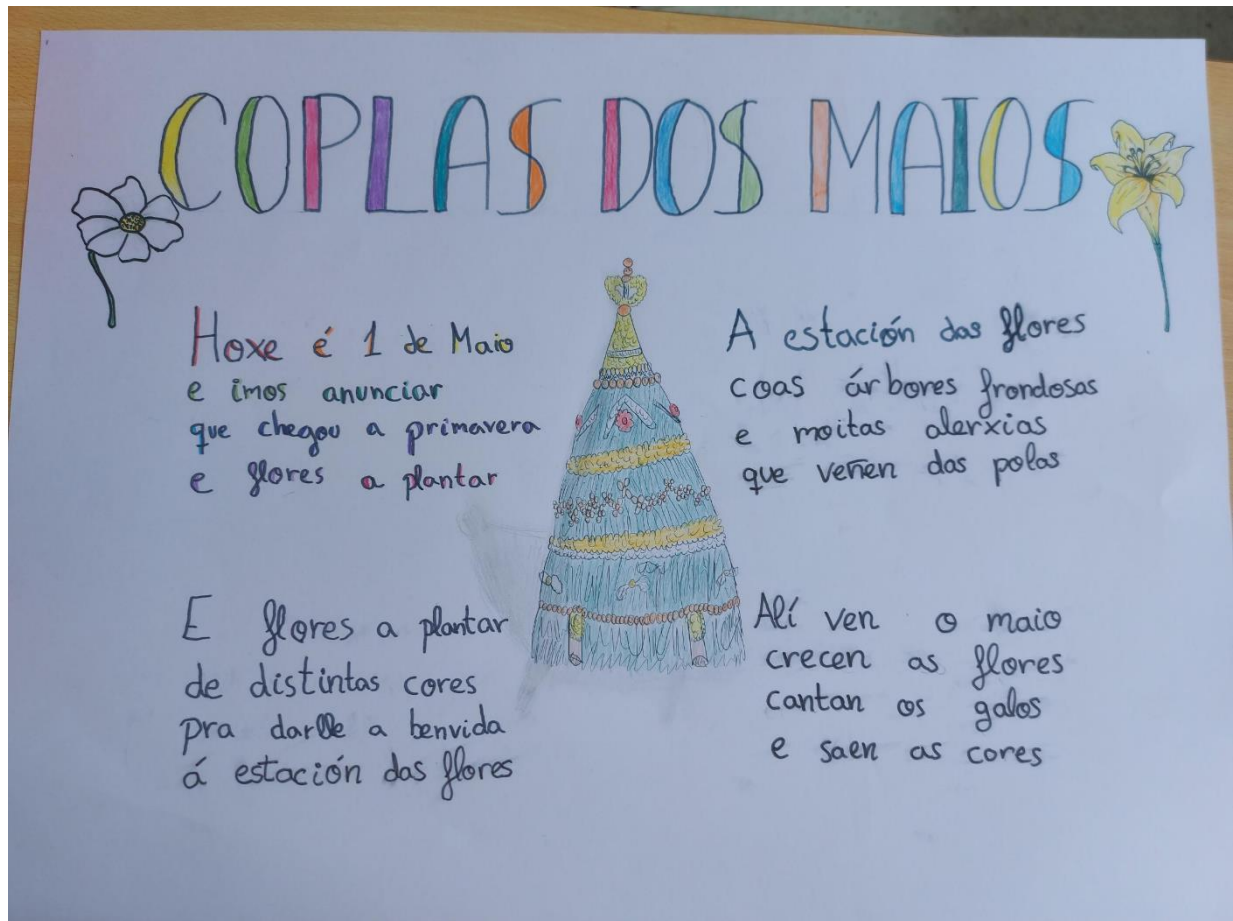 COPLAS DOS MAIOS
Hoxe é 1 de Maio
e imos anunciar
que chegou a primavera
e flores a plantar
E flores a plantar
de distintas cores
pra darlle a benvida
á estación das flores
A estación das flores
coas árbores frondosas
e moitas alerxias
que veñen das polas
Alí ven o maio
crecen as flores
cantan os galos
e saen as cores